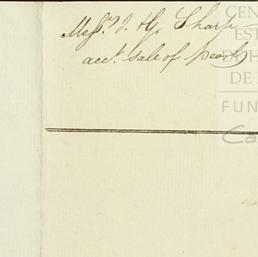 Messrs. J. & H. Sharp
acct. sale of pearls
CEN
EST
DE H
DE
FUN
Ca